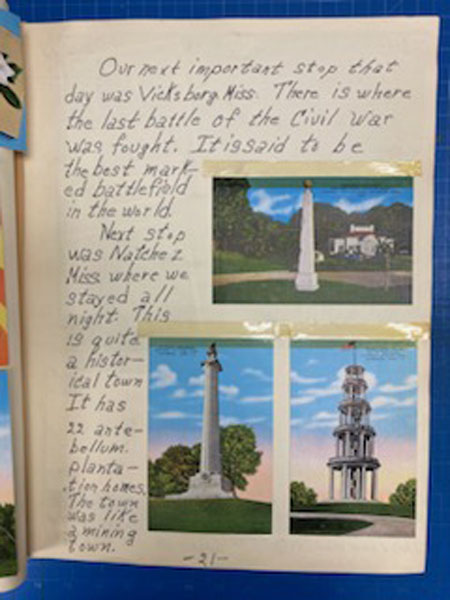 Our next important stop that
day was Vicksborg Miss. There is where
the last battle of the Civil War
was fought. It is said to be
the best mark-
ed battlefield
in the world.
Next stop
was Natchez
Miss. where we
stayed all
night. This
is quite
a histor-
ical town
It has
22 ante-
bellum.
planta-
tion homes.
The town
was like
a mining
town.
-21-